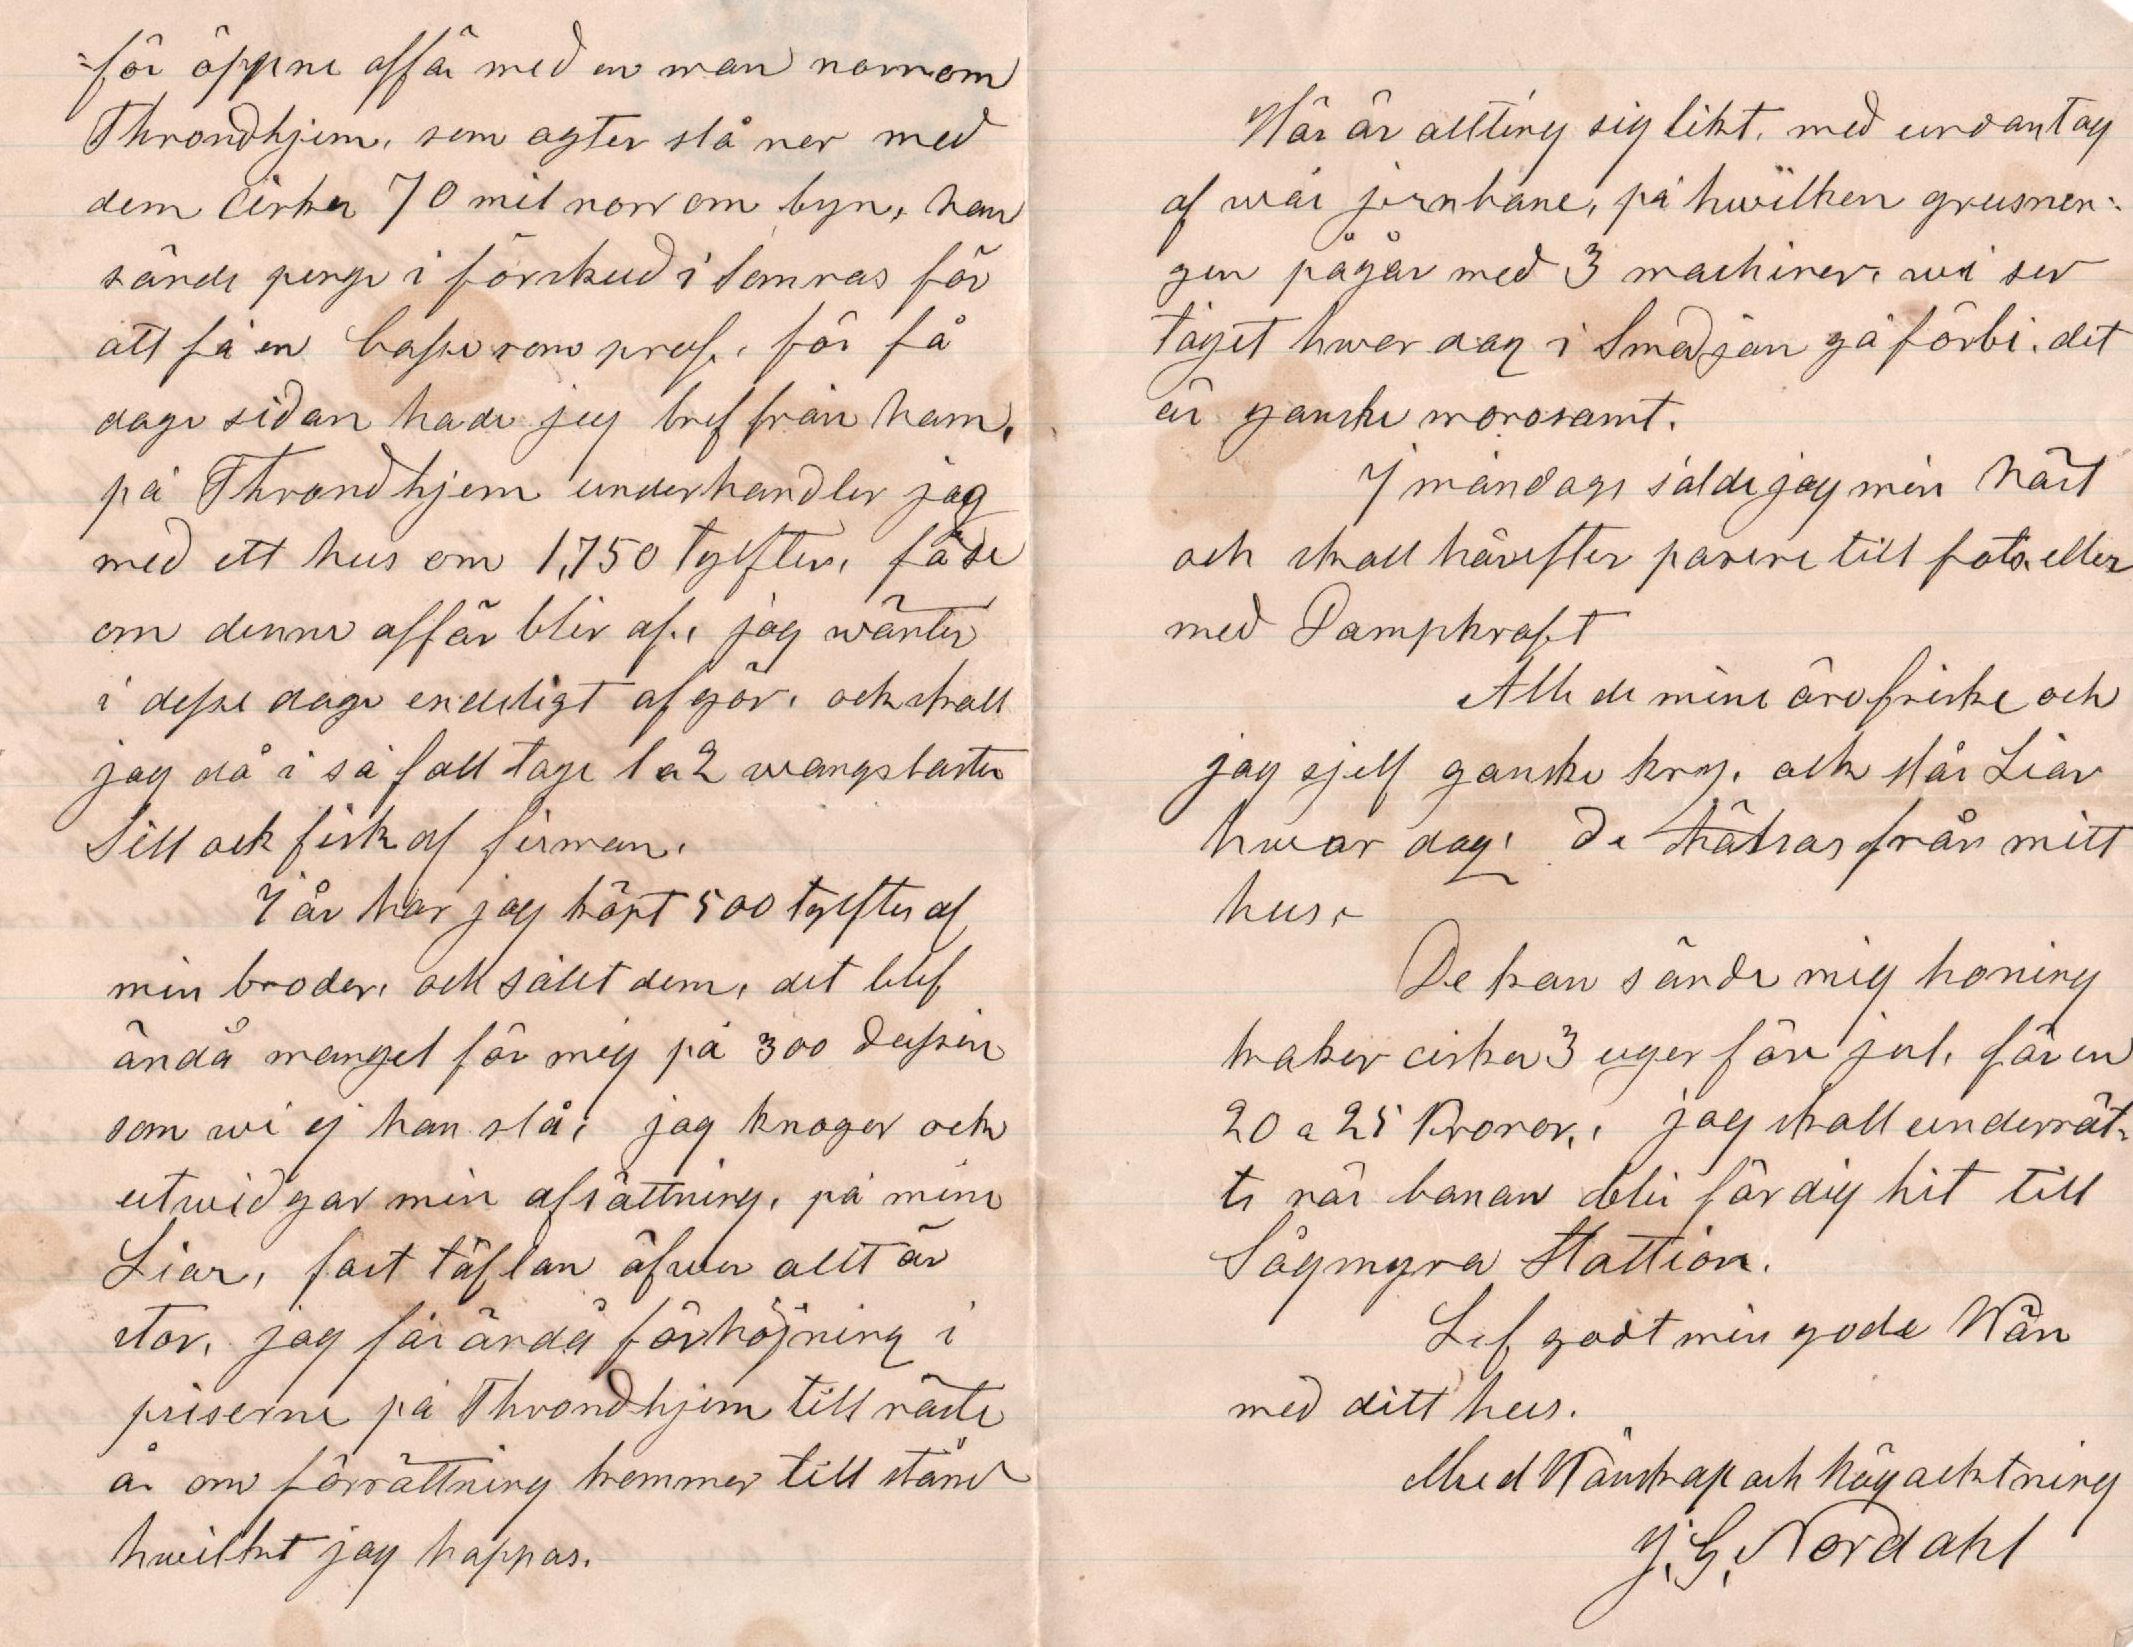 för öppne affär med en man norr om
Throndhjem, som agter slå ner med
dem cirka 70 mil norr om byn, han
sände penge i förskud i somras för
att få en kasse som prof, för få
dage sidan hade jeg bref från ham,
på Throndhjem underhandler jag
med ett hus om 1,750 tylfter, få se
om denne affär blir af, jag wänter
i desse dage endeligt afgör, och skall
jag då i så fall tage 1 a 2 wangslaster
Sill ock fisk af firman.
I år har jag köpt 500 tylfter af
min broder, och sålt dem, det blef
ändå mangel för mig på 300 dussin
som wi ej han slå, jag knoger och
utwidgar min afsättning, på mine
Liar, fast täflan öfwer allt är
stor, jag får ändå förhöjning i
priserne på Throndhjem till näste
år om förrättning kommer till stånd
hwilket jag hoppas.
Här är allting sig likt, med undantag
af wår jernbane, på hwilken grusnen-
gen pågår med 3 machiner, wi ser
tåget hwar dag i Smedjan gå förbi, det
är ganske morosamt.
I måndags sålde jag min häst
och skall härefter parere till fots eller
med Dampkraft
Alle de mine äro friske och
jag sjelf ganske kry, och slår Liar
hwar dag. De hälsas från mitt
hus.
De kan sände mig honing
kaker cirka 3 uger före jul, för en
20 a 25 Kronor, jag skall underrät-
te när banan blir färdig hit till
Sågmyra Stattion.
Lef godt min gode Wän
med ditt hus.
Med Wänskap och högacktning
J. G. Nordahl